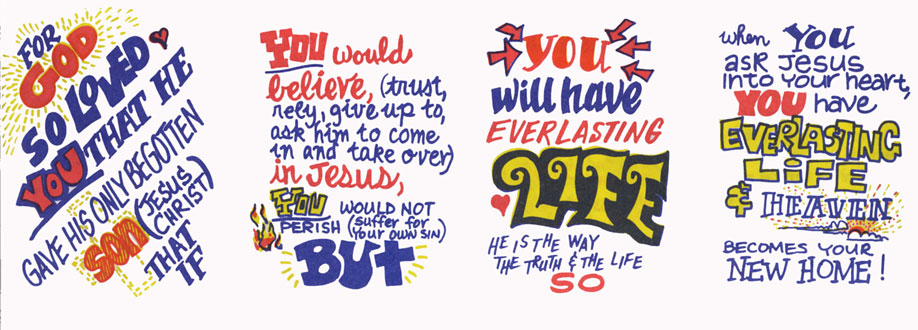 FOR
GOD
SO LOVED
YOU THAT HE
GAVE HIS ONLY BEGOTTEN
SON (JESUS
CHRIST)
THAT
IF
YOU would
believe, (trust,
rely, give up to,
ask him to come
in and take over)
in Jesus,
YOU WOULD NOT
PERISH (suffer for
your own sin)
BUT
YOU
will have
EVERLASTING
LIFE
HE IS THE WAY
THE TRUTH & THE LIFE
SO
when YOU
ask Jesus
into your heart,
YOU have
EVERLASTING
LiFE
& HEAVEN
BECOMES YOUR
NEW HOME!